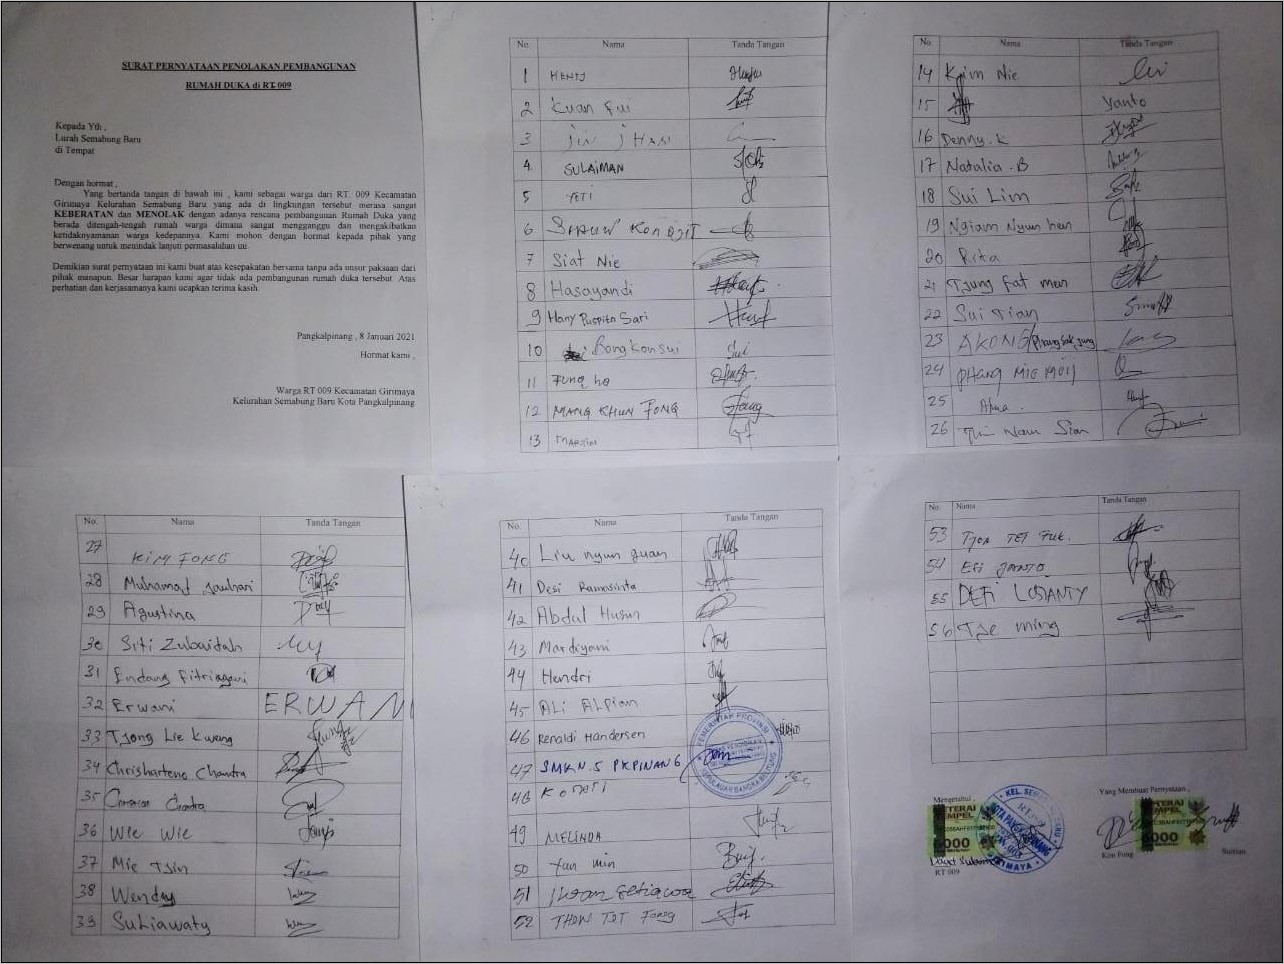 SURAT PERNYATAAN PENOLAKAN PEMBANGUNAN
RUMAH DUKA di RT 009
Kepada Yth ,
Lurah Semabung Baru
di Tempat
Dengan hormat ,
Yang bertanda tangan di bawah ini , kami sebagai warga dari RT. 009 Kecamatan
Girimaya Kelurahan Semabung Baru yang ada di lingkungan tersebut merasa sangat
KEBERATAN dan MENOLAK dengan adanya rencana pembangunan Rumah Duka yang
berada ditengah-tengah rumah warga dimana sangat mengganggu dan mengakibatkan
ketidaknyamanan warga kedepannya. Kami mohon dengan hormat kepada pihak yang
berwenang untuk menindak lanjuti permasalahan ini.
Demikian surat pernyataan ini kami buat atas kesepakatan bersama tanpa ada unsur paksaan dari
pihak manapun. Besar harapan kami agar tidak ada pembangunan rumah duka tersebut. Atas
perhatian dan kerjasamanya kami ucapkan terima kasih.
Pangkalpinang , 8 Januari 2021
Hormat kami ,
Warga RT 009 Kecamatan Girimaya
Kelurahan Semabung Baru Kota Pangkalpinang
No. Nama Tanda Tangan
1
2 Kuan Fui
3
4 SULAIMAN
5 YETI
6
7 Siat Nie
8 Hasayandi
9 Hany Puspita Sari
10 Bong Kon Sui Sui
11 Fung ha
12 MANG KHUN FONG
13
No Nama Tanda Tangan
14 Kim Nie
15 Yanto
16 Denny. K
17 Natalia . B
18 Sui Lim
19 Ngiam Nyun hen
20 Rita
21 Tjung Fat men
22 Sui Tian
23 AKONG
24 PHANG MIE MOIJ
25
26
No. Nama Tanda Tangan
27 KIM FONG
28 Muhamad Jauhari
29 Agustina
30 Siti Zubaidah
31 Endang Fitriagani
32 Erwani ERWANI
33 Tjong Lie Kwang
34 Chrisharteno Chandra
35 Chandra
36 Wie Wie
37 Mie Tjin
38 Wendy
39 Suliawaty
No. Nama Tanda Tangan
40 Liu nyun guan
41 Desi Ramasinta
42 Abdul Husin
43 Mardiyani
44 Hendri
45 ALI ALPIAN
46 Renaldi Handersen
47 SMKN.5 PKPINANG
48
49 MELINDA
50 Yun min
51 Ikhsan Setiawan
52
PEMERINTAH PROVINSI
KEPULAUAN BANGKA BELITUNG
No. Nama Tanda Tangan
53
54
55 DEFI LUSANTY
56 Tje ming
Mengetahui ,
Yang Membuat Pernyataan ,
METERAI
TEMPEL
6000
KOTA PANGKALPINANG
GIRIMAYA
RT 009
Kim Fong
Suitian